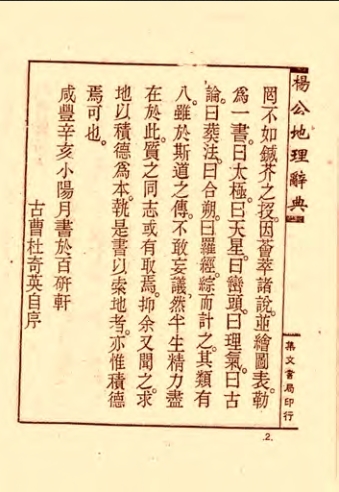 楊公地理辭典
罔不如鍼芥之投。因薈萃諸說。並繪圖表。勒
爲一書。曰太極。曰天星。曰巒頭。曰理氣。曰古
論。曰葬法。曰合朔。曰羅經。綜而計之。其類有
八。雖於斯道之傳。不敢妄議。然半生精力盡
在於此。質之同志或有取焉。抑余又聞之。求
地以積德爲本。執是書以索地者。亦惟積德
焉可也。
咸豐辛亥小陽月書於百硏軒
古曹杜奇英自序
集文書局印行
.2.